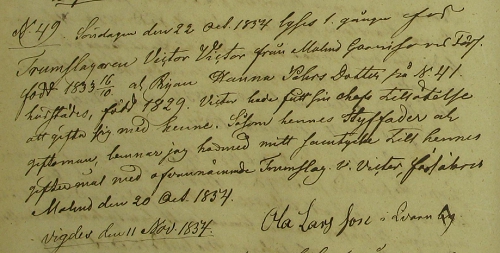 N. 49. Söndagen den 22 Oct. 1854 lystes 1. gången för
Trumslagaren Victor Victor från Malmö Garnison
född 1833 16/10 och Pigan Hanna Pehrs Dotter på N. 41
härstädes, född 1829. Victor hade fått sin chefs tillåtelse
att gifta sig med henne. Såsom hennes Styffader och
giftoman, lemnar jag härmed mitt samtycke till hennes
giftermål med ofvannämnde Trumslag. V. Victor
Malmö den 20 Oct. 1854.
Ola Lars
Vigdes den 11 Nov. 1854.